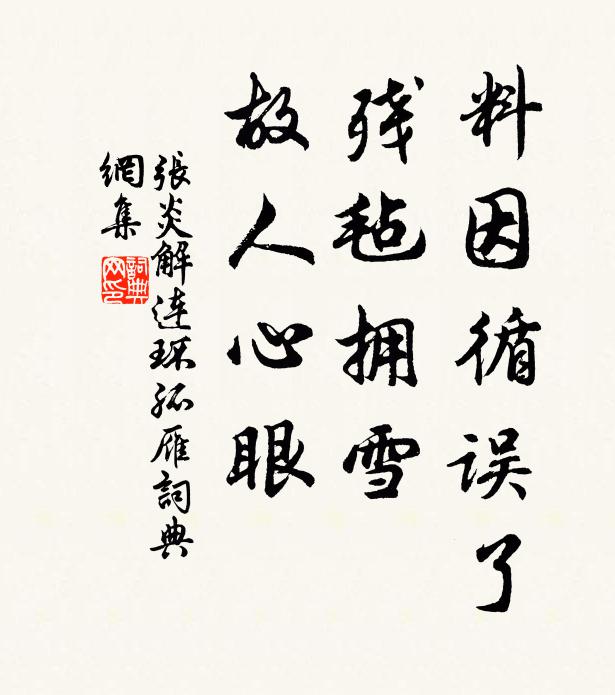 料因循误了
残毡拥雪
故人心眼
張炎解连环孤雁詞典
網集
詞典网